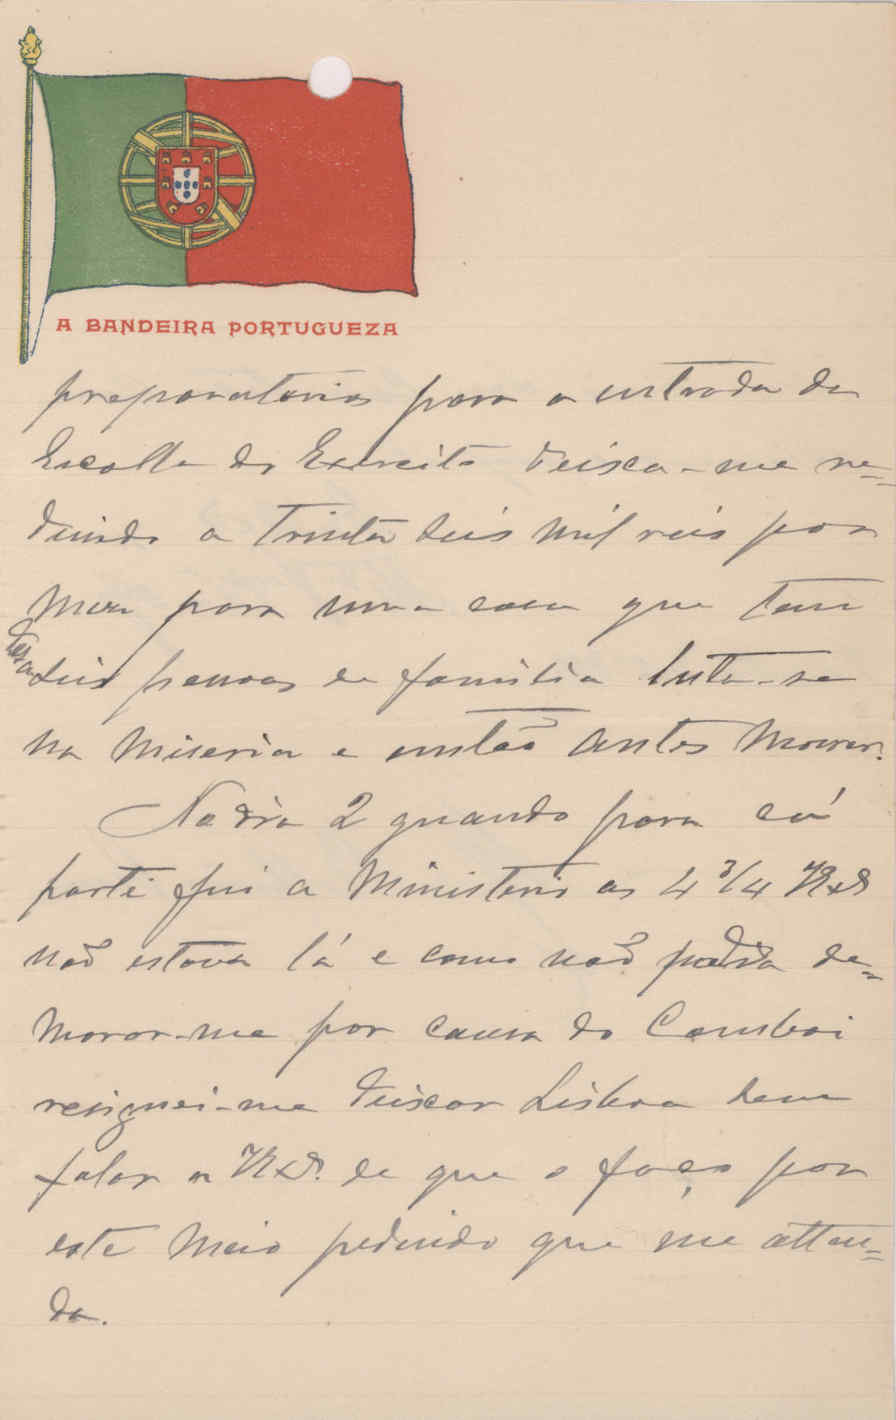 A BANDEIRA PORTUGUEZA
preparatorios para a entrada da
Escolla do Exercito deixa-me re=
duzido a trinta dois mil reis por
mez para uma casa que tem
seis pessoas de familia luta-se
na miseria e então antes morrer.
No dia 2 quando para cá
parti fui a Ministerio as 4 3/4 VExª
não estava lá e como não podia de=
morar-me por causa do Comboi
resignei-me deixar Lisboa sem
falar a VExª. de que o faço por
este meio pedindo que me atten=
da.